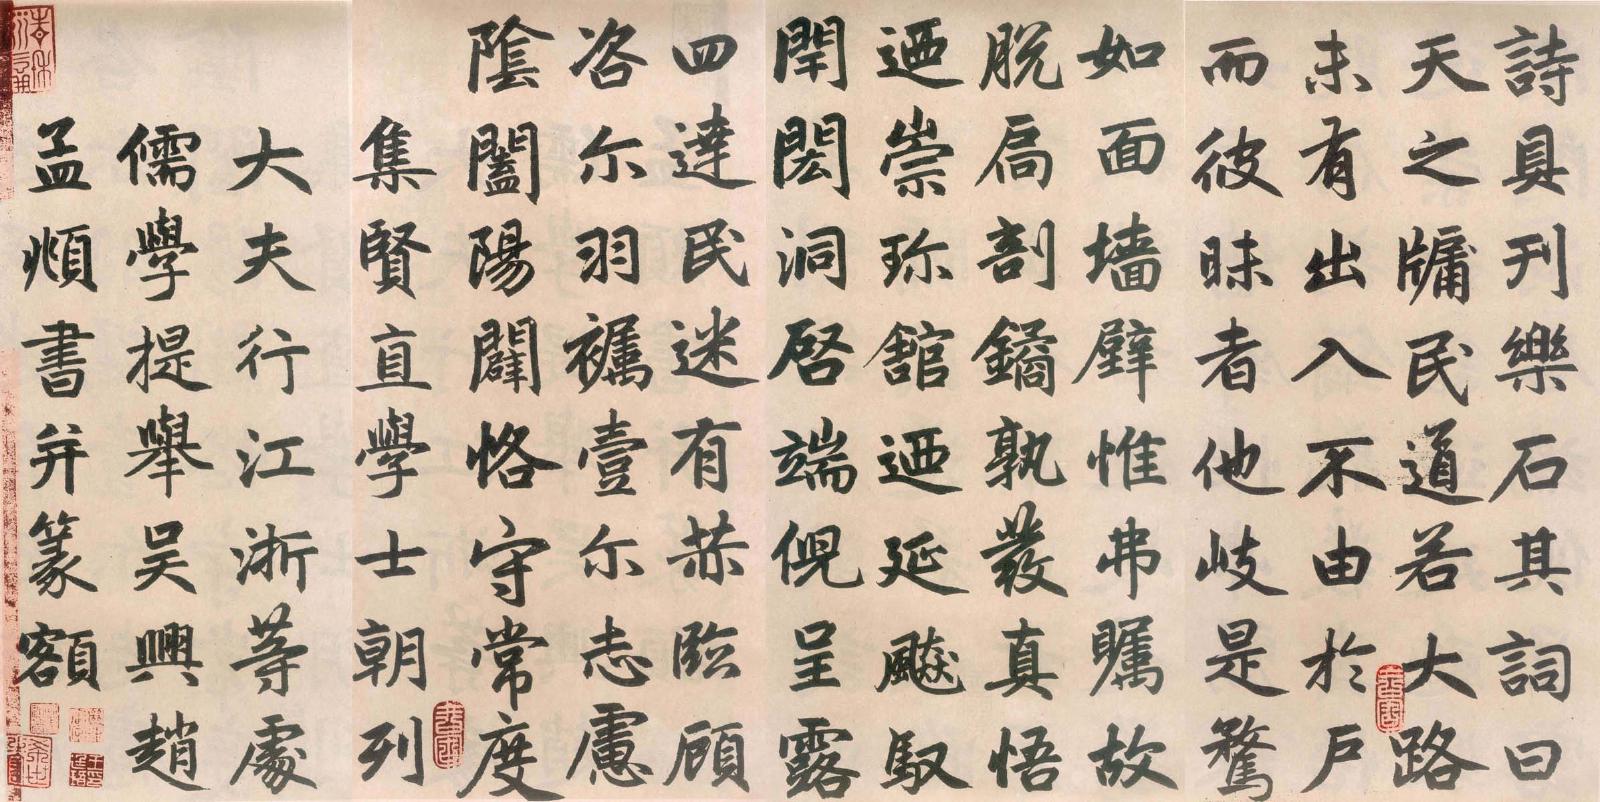 詩具刊樂石其詞曰
天之牖民道若大路
未有出入不由於戶
而彼昧者他岐是騖
如面墻壁惟弗矚故
脫扃剖鐍孰發真悟
迺崇珎館迺延飈馭
閈閎洞啓端倪呈露
四達民迷有赫臨顧
咨尔羽襱壹尔志慮
陰闔陽闢恪守常度
集賢直學士朝列
大夫行江浙等處
儒學提舉吴興趙
孟頫書并篆額